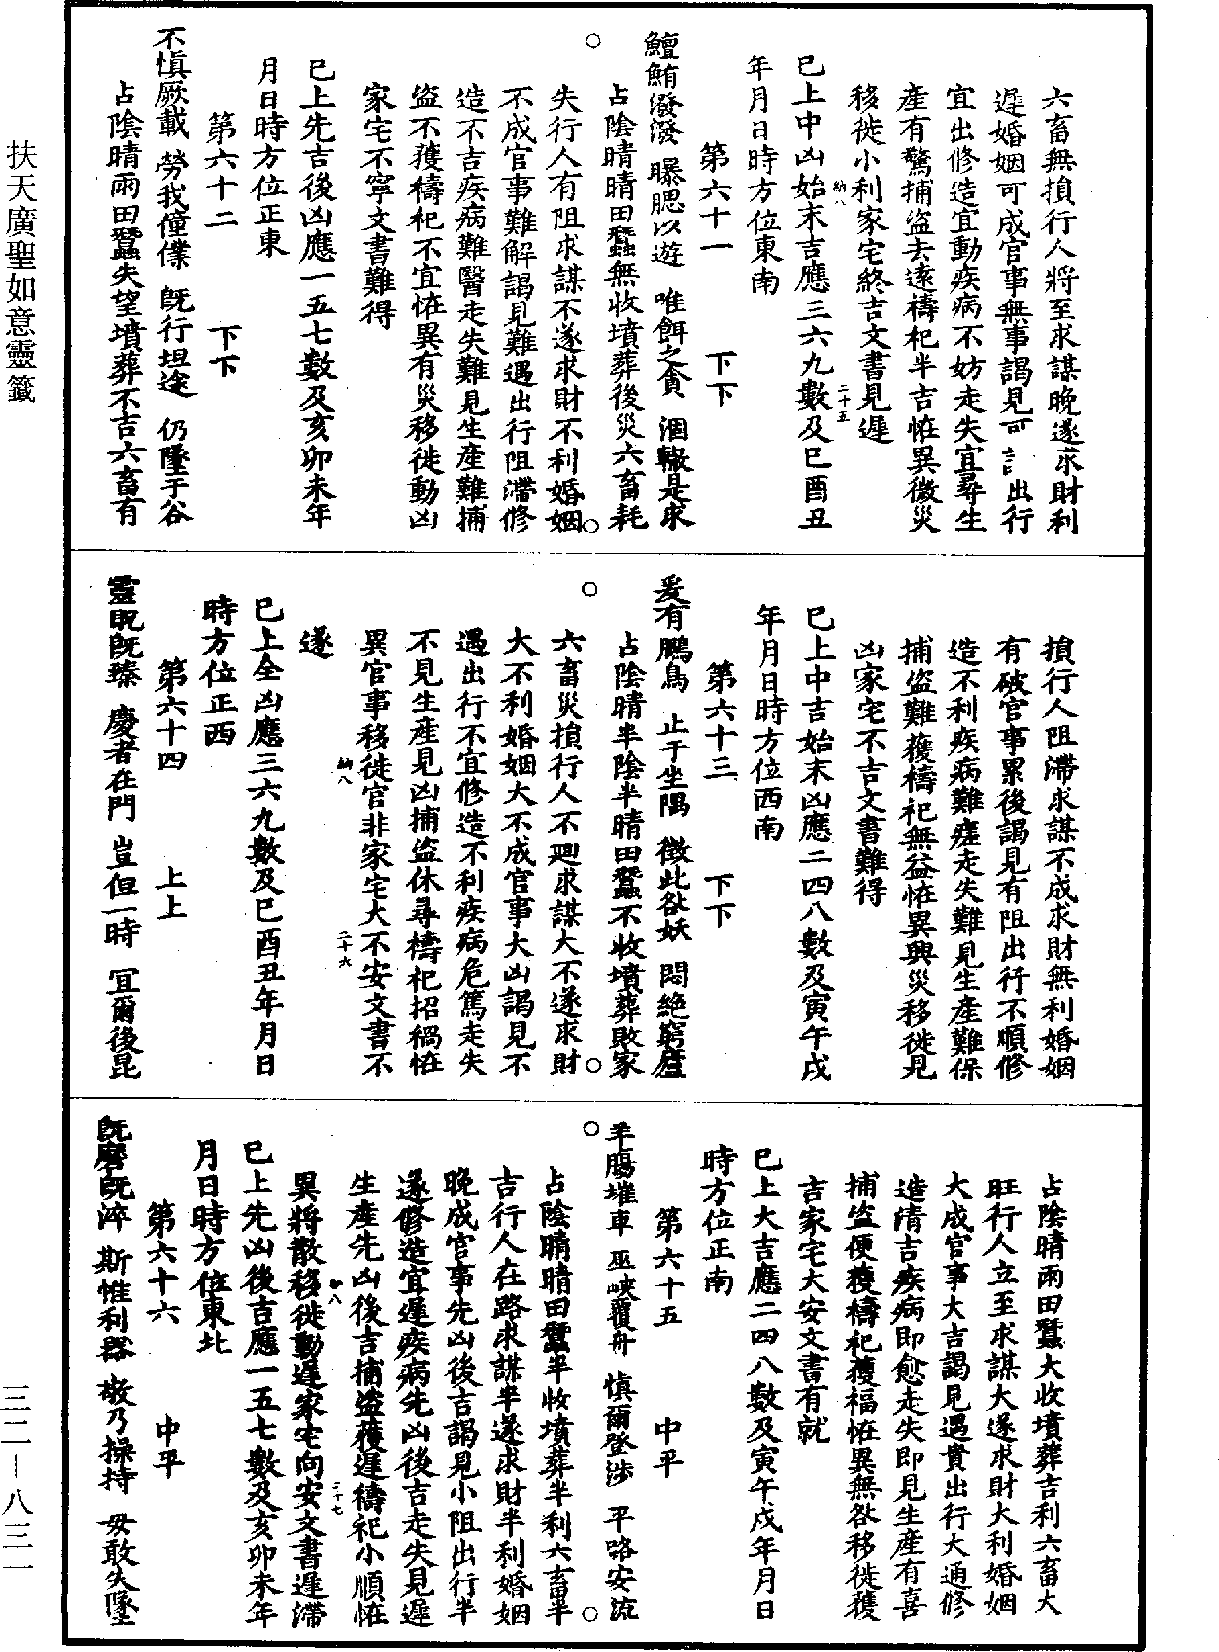 六畜無損行人將至求謀晚遂求財利
遲婚姻可成官事無事謁見可 出行
宜出修造宜動疾病不妨走失宜尋生
產有驚捕盜去遠禱祀半吉恠異微災
移徙小利家宅終吉文書見遲
納八
二十五
已上中凶始末吉應三六九數及巳酉丑
年月日時方位東南
第六十一 下下
鱣鮪潑潑 曝腮以遊 唯餌之貪 涸轍是求
占陰晴晴田蠶無收墳葬後災六畜耗
失行人有阻求謀不遂求財不利婚姻
不成官事難解謁見難遇出行阻滯修
造不吉疾病難醫走失難見生產難捕
盜不獲禱祀不宜恠異有災移徙動凶
家宅不寧文書難得
已上先吉後凶應一五七數及亥卯未年
月日時方位正東
第六十二 下下
不慎厥載 勞我僮僕 旣行坦途 仍墜于谷
占陰晴雨田蠶失望墳葬不吉六畜有
損行人阻滯求謀不成求財無利婚姻
有破官事累後謁見有阻出行不順修
造不利疾病難痊走失難見生產難保
捕盜難獲禱祀無益恠異興災移徙見
凶家宅不吉文書難得
已上中吉始末凶應二四八數及寅午戌
年月日時方位西南
第六十三 下下
爰有鵩鳥 止于坐隅 徵此咎妖 悶絶窮廬
占陰晴半陰半晴田蠶不收墳葬敗家
六畜災損行人不廻求謀大不遂求財
大不利婚姻大不成官事大凶謁見不
遇出行不宜修造不利疾病危篤走失
不見生產見凶捕盜休尋禱祀招禍恠
異官事移徙官非家宅大不安文書不
納八
二十六
遂
已上全凶應三六九數及巳酉丑年月日
時方位正西
第六十四 上上
靈貺旣臻 慶者在門 豈但一時 宜爾後昆
占陰晴雨田蠶大收墳葬吉利六畜大
旺行人立至求謀大遂求財大利婚姻
大成官事大吉謁見遇貴出行大通修
造清吉疾病即愈走失即見生產有喜
捕盜便獲禱祀獲福恠異無咎移徙獲
吉家宅大安文書有就
已上大吉應二四八數及寅午戌年月日
時方位正南
第六十五 中平
羊腸摧車 巫峽覆舟 慎爾登涉 平路安流
占陰晴晴田蠶半收墳葬半利六畜半
吉行人在路求謀半遂求財半利婚姻
晚成官事先凶後吉謁見小阻出行半
遂修造宜遲疾病先凶後吉走失見遲
生產先凶後吉捕盜獲遲禱祀小順恠
異將散移徙動遲家宅向安文書遲滯
納八
二十七
已上先凶後吉應一五七數及亥卯未年
月日時方位東北
第六十六 中平
旣磨旣淬 斯惟利器 敬乃操持 毋敢失墜
扶天廣聖如意靈籤
三二—八三一